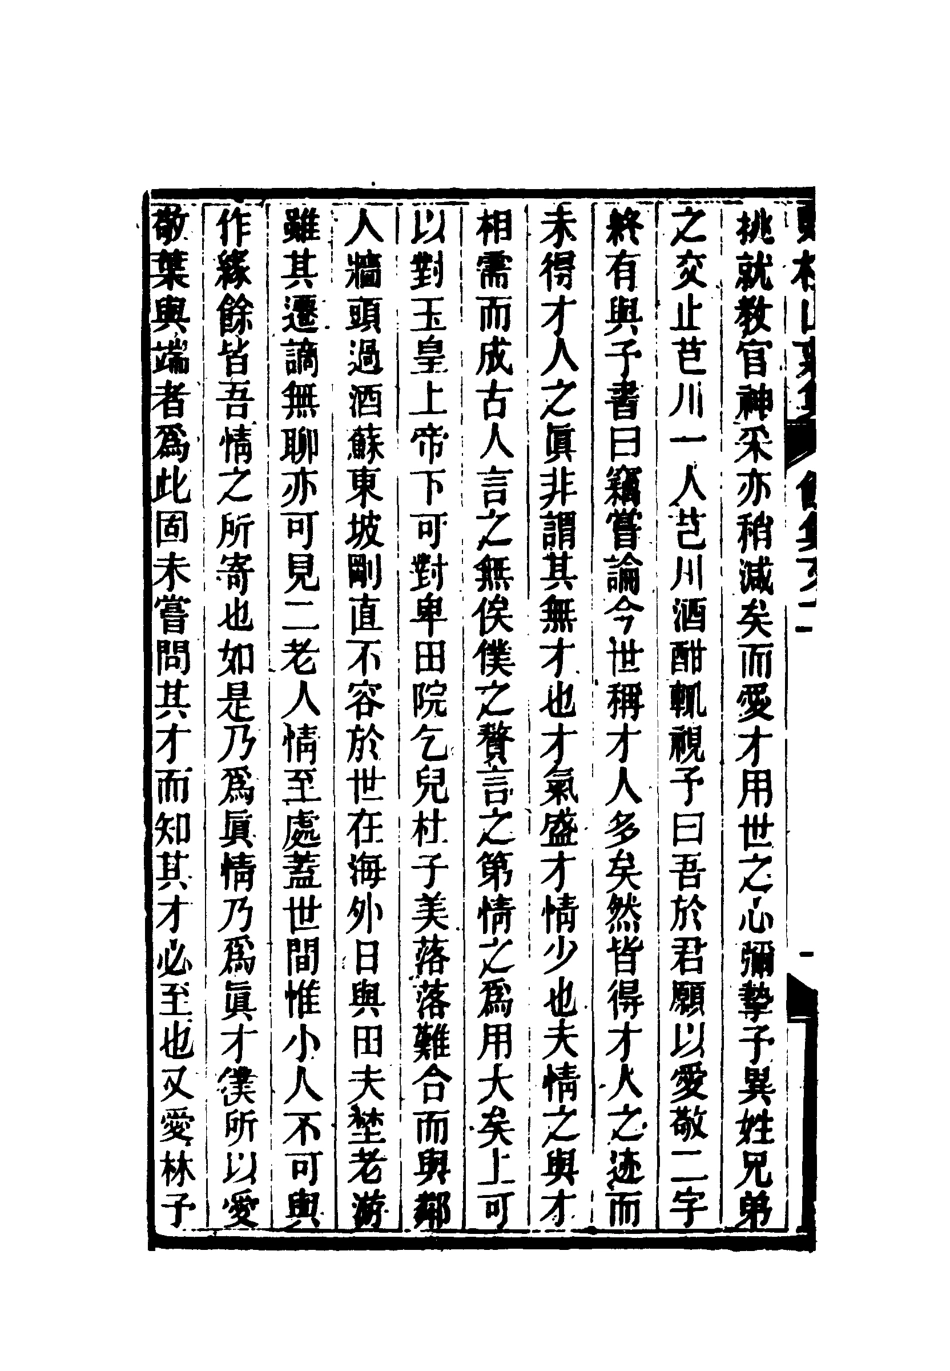 挑就教官神采亦稍減矣而愛才用世之心彌摯予異姓兄弟
之交止芑川一人芑川酒酣輒視予曰吾於君願以愛敬二字
終有與予書曰竊嘗論今世稱才人多矣然皆得才人之迹而
未得才人之眞非謂其無才也才氣盛才情少也夫情之與才
相需而成古人言之無俟僕之贅言之第情之爲用大矣上可
以對玉皇上帝下可對卑田院乞兒杜子美落落難合而與鄰
人牆頭過酒蘇東坡剛直不容於世在海外日與田夫埜老游
雖其遷謫無聊亦可見二老人情至處蓋世間惟小人不可與
作緣餘皆吾情之所寄也如是乃爲眞情乃爲眞才僕所以愛
敬葉與端者爲此固未嘗問其才而知其才必至也又愛林子